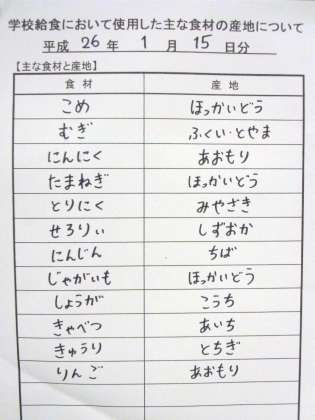 学校給食において使用した主な食材の産地について
平成 26 年 1 月 15 日分
【主な食材と産地】
食材 産地
こめ ほっかいどう
むぎ ふくい・とやま
にんにく あおもり
たまねぎ ほっかいどう
とりにく みやざき
せろりぃ しずおか
にんじん ちば
じゃがいも ほっかいどう
しょうが こうち
きゃべつ あいち
きゅうり とちぎ
りんご あおもり